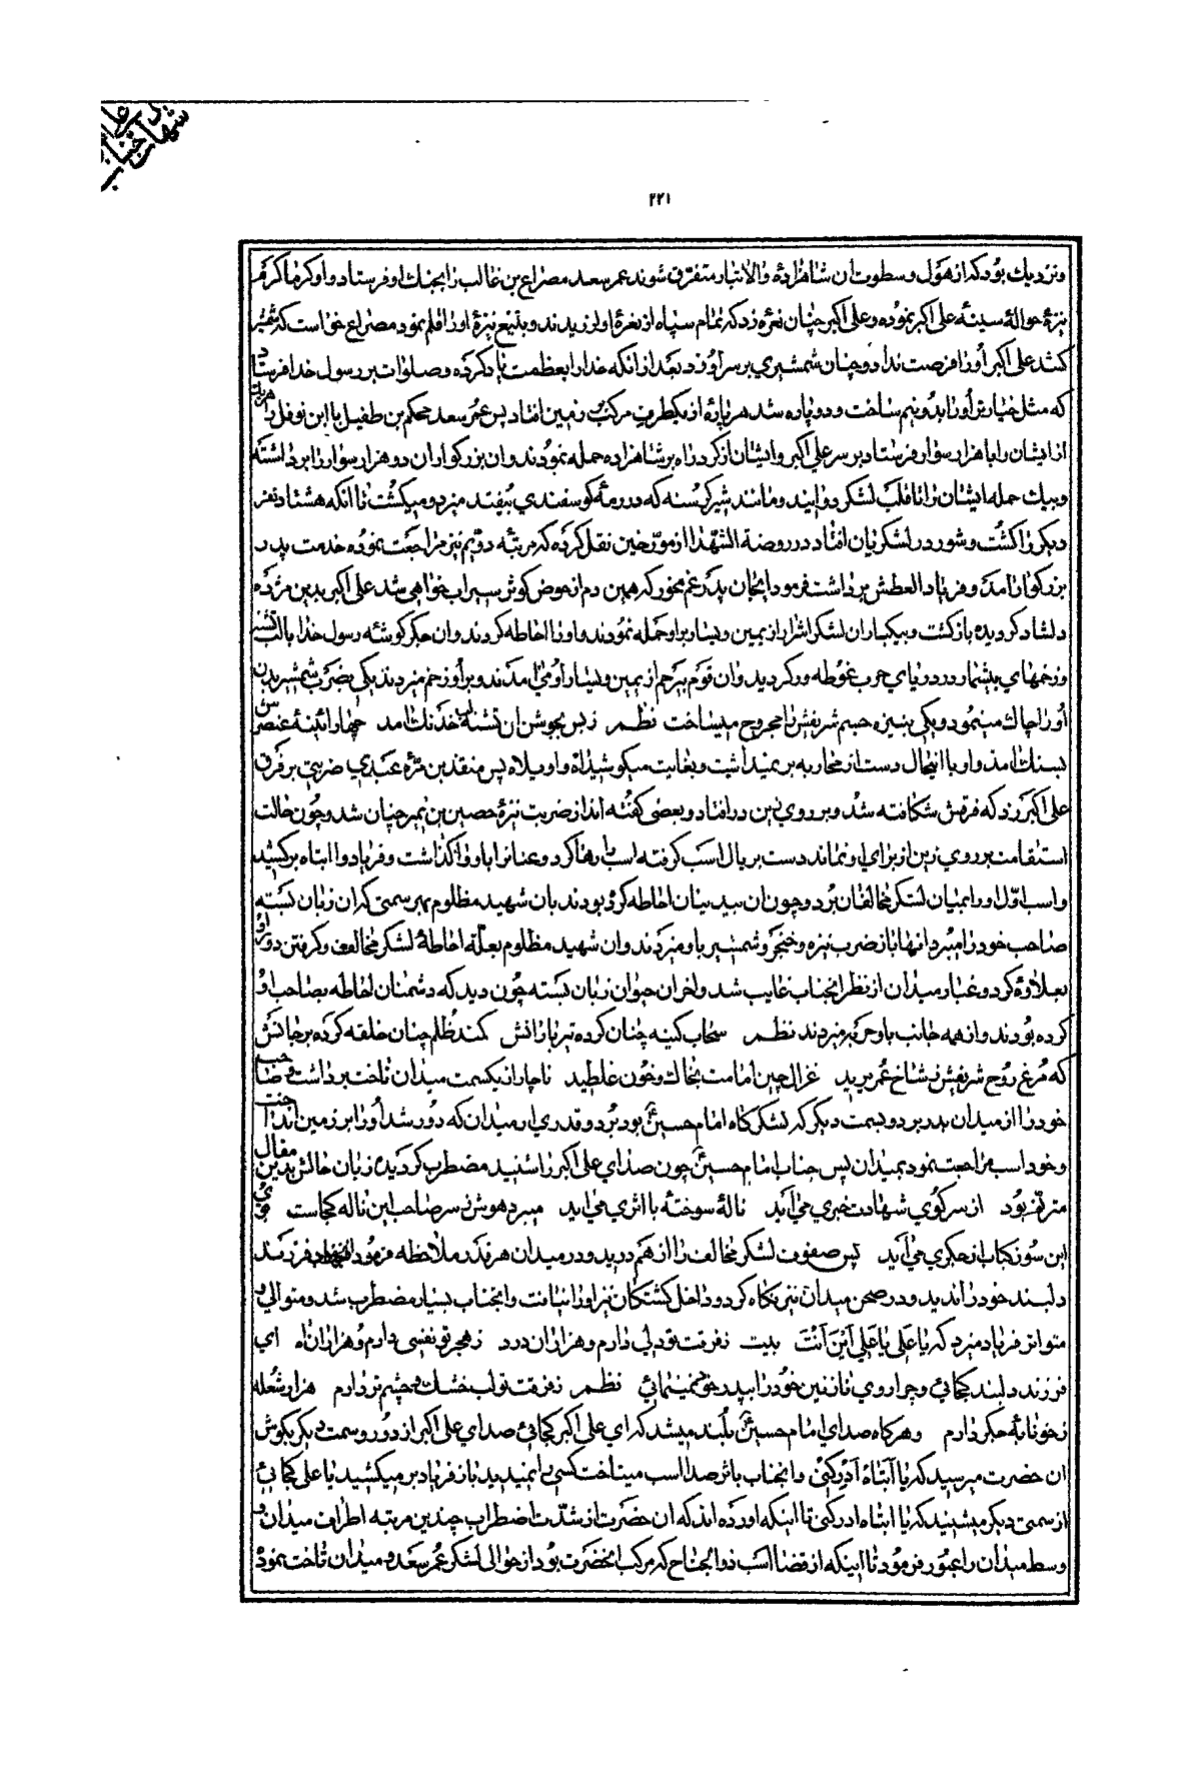 شهادت جناب
۲۲۱
و نزدیك بود که از هول و سطوت ان شاهزادهٔ والاتبار متفرق شوند عمر سعد مصراع بن غالب را بجنك او فرستاد و او کرماکرم
نیزهٔ حوالهٔ سینهٔ علی اکبر نموده و علی اکبر چنان نعره زد که تمام سپاه از نعرهٔ او لرزیدند و بتیغ نیزهٔ او را قلم نمود مصراع خواست که شمشیر
کشد علی اکبر او را فرصت نداد و چنان شمشیری بر سر او زد بعد از انکه خدا را بعظمت یاد کرده و صلوات بر رسول خدا فرستاد
که مثل خیار تر او را بدو نیم ساخت و دو پاره شد هر پارهٔ از یکطرف مرکب بزمین افتاد پس عمر سعد محکم بن طفیل با ابن نوفل با هریك
از ایشان را با هزار سوار فرستاد بر سر علی اکبر و ایشان از کرد راه بر شاهزاده حمله نمودند و ان بزرکوار ان دو هزار سوار را برداشته
و بیك حمله ایشان را تا قلب لشکر دوانید و مانند شیر کرسنه که در رمهٔ کوسفندی بیفتد میزد و میکشت تا انکه هشتاد نفر
دیکر را کشت و شور در لشکریان افتاد در روضة الشهدا از مورخین نقل کرده که مرتبه دویم نیز مراجعت نموده خدمت پدر
بزرکوار امد و فریاد العطش برداشت فرمود ایجان پدر غم مخور که همین دم از حوض کوثر سیراب خواهی شد علی اکبر بدین مژده
دلشاد کردیده بازکشت و بیکبار ان لشکر اشرار از یمین و یسار بر او حمله نمودند و او را احاطه کردند و ان جکر کوشهٔ رسول خدا با لب تشنه
و زخمهای بیشمار در دریای حرب غوطه ور کردید و ان قوم بیرحم از یمین و یسار او می امدند و بر او زخم میزدند یکی بضرب شمشیر بدن
او را چاك مینمود و یکی بنیزه جسم شریفش را مجروح میساخت نظم ز بس بجوشن ان تشنه لب خدنك امد چهار ائینهٔ عنصرش
بسنك امد و او با اینحال دست از محاربه بر نمیداشت و بغایت میکوشید اه واویلاه پس منقذ بن مره عبدی ضربتی بر فرق
علی اکبر زد که فرقش شکافته شد و بر روی زین در افتاد و بعضی کفته اند از ضربت نیزهٔ حصین بن نمیر چنان شد و چون حالت
استقامت بر روی زین از برای او نماند دست بر یال اسب کرفته اسب را رها کرد و عنانرا باو واکذاشت و فریاد وا ابتاه برکشید
و اسب اول او را بمیان لشکر مخالفان برد و چون ان بیدینان احاطه کرده بودند بان شهید مظلوم بهر سمتی که ان زبان بسته
صاحب خود را میبرد انها باز ضرب نیزه و خنجر و شمشیر باو میزدند و ان شهید مظلوم بعلة احاطهٔ لشکر مخالف و کرفتن دور او
بعلاوهٔ کرد و غبار میدان از نظر انجناب غایب شد و اخر ان حیوان زبان بسته چون دید که دشمنان احاطه بصاحب او
کرده بودند و از همه جانب باو حربه میزدند نظم سحاب کینه چنان کرده تیر بارانش کمند ظلم چنان حلقه کرده بر جانش
که مرغ روح شریفش ز شاخ عمر پرید غزال چین امامت بخاك و خون غلطید ناچار از یکسمت میدان تاخت برداشت و صاحب
خود را از میدان بدر برد و بسمت دیکر که لشکرکاه امام حسین بود برد و قدری از میدان که دور شد او را بر زمین انداخت
و خود اسب مراجعت نمود بمیدان پس جناب امام حسین چون صدای علی اکبر را شنید مضطرب کردیده زبان حالش بدین مقال
مترنم بود از سر کوی شهادت خبری می آید نالهٔ سوختهٔ با اثری می آید میبرد هوش ز سر صاحب این ناله کجاست بوی
این سوز کباب از جکری می آید پس صفوف لشکر مخالف را از هم درید و در میدان هر قدر ملاحظه فرمود فرزند
دلبند خود را ندید و در صحن میدان نیز نکاه کرد و داخل کشتکان نیز او را نیافت و انجناب بسیار مضطرب شد و متوالی و
متواتر فریاد میزد که یا علی یا علی این انت بیت ز فرقت تو دلی دارم و هزاران درد ز هجر تو نفسی دارم و هزاران اه ای
فرزند دلبند کجائی و چرا روی نازنین خود را بپدر خود نمینمائی نظم ز فرقت تو لب خشك و چشم تر دارم هزار شعله
ز خونابهٔ جکر دارم و هرکاه صدای امام حسین بلند میشد که ای علی اکبر کجائی صدای علی اکبر از دور و سمت دیکر بکوش
ان حضرت میرسید که یا ابتاه ادرکنی و انجناب باثر صدا اسب میتاخت کسی را نمیدید باز فریاد بر میکشید یا علی کجائی
از سمتی دیکر میشنید که یا ابتاه ادرکنی تا اینکه اورده اند که ان حضرت از شدت اضطراب چندین مرتبه اطراف میدان و
وسط میدان را عبور فرمود تا اینکه از قضا اسب ذوالجناح که مرکب انحضرت بود از حوالی لشکر عمر سعد و میدان تاخت نمود